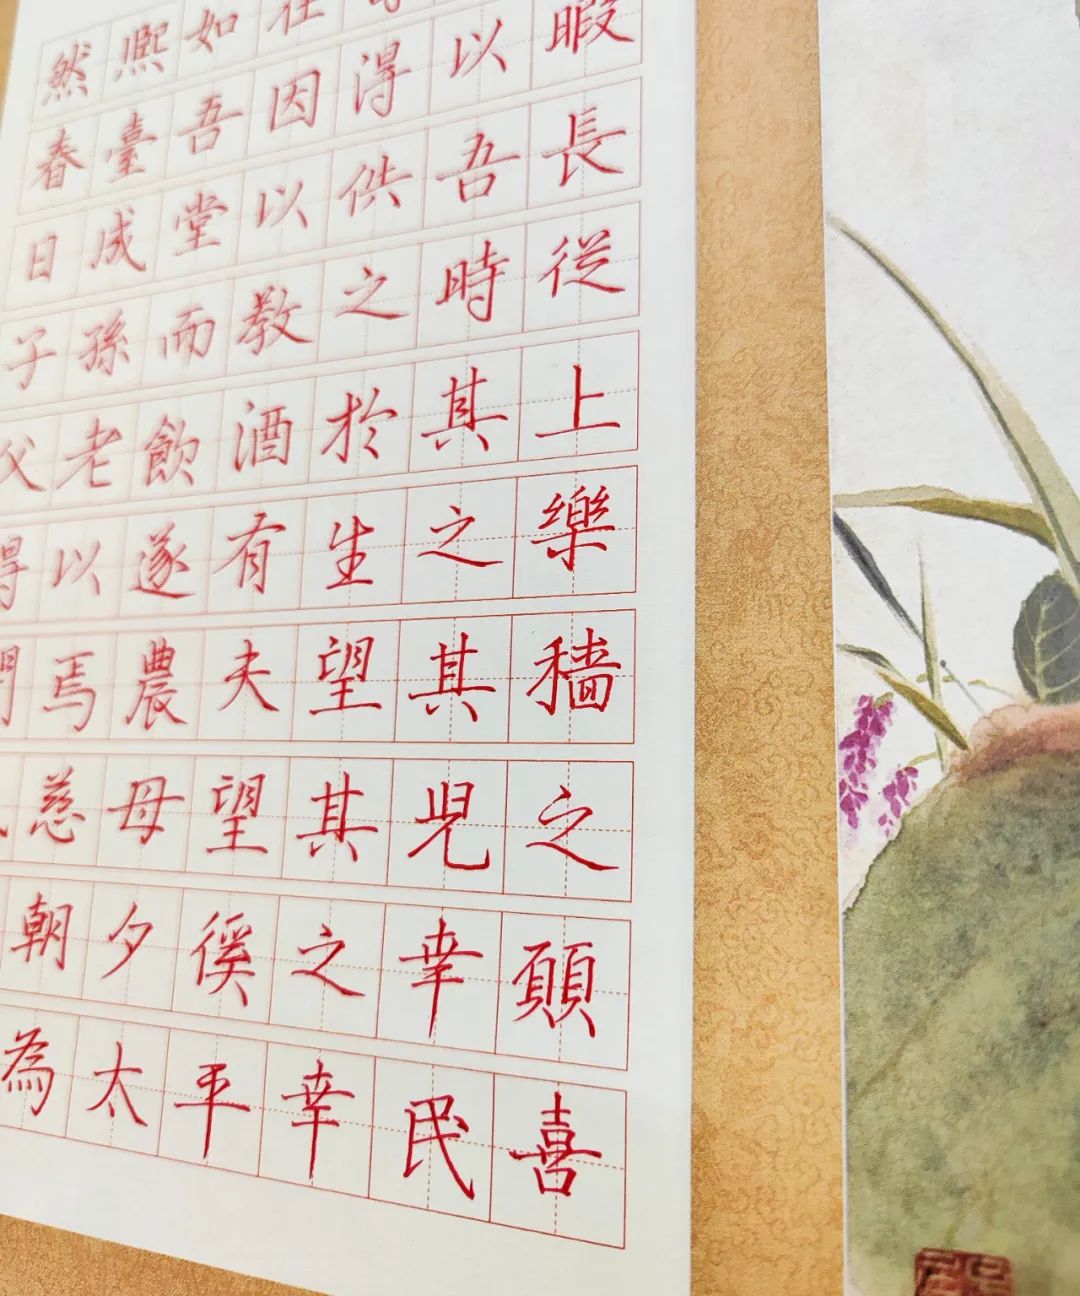 暇長從上樂穡之願喜
以吾時其之其兒幸民
得供之於生望其之幸
在因以教酒有夫望徯平
如吾堂而飲遂農母夕太
熙臺成孫老以焉慈朝為
然春日子父得